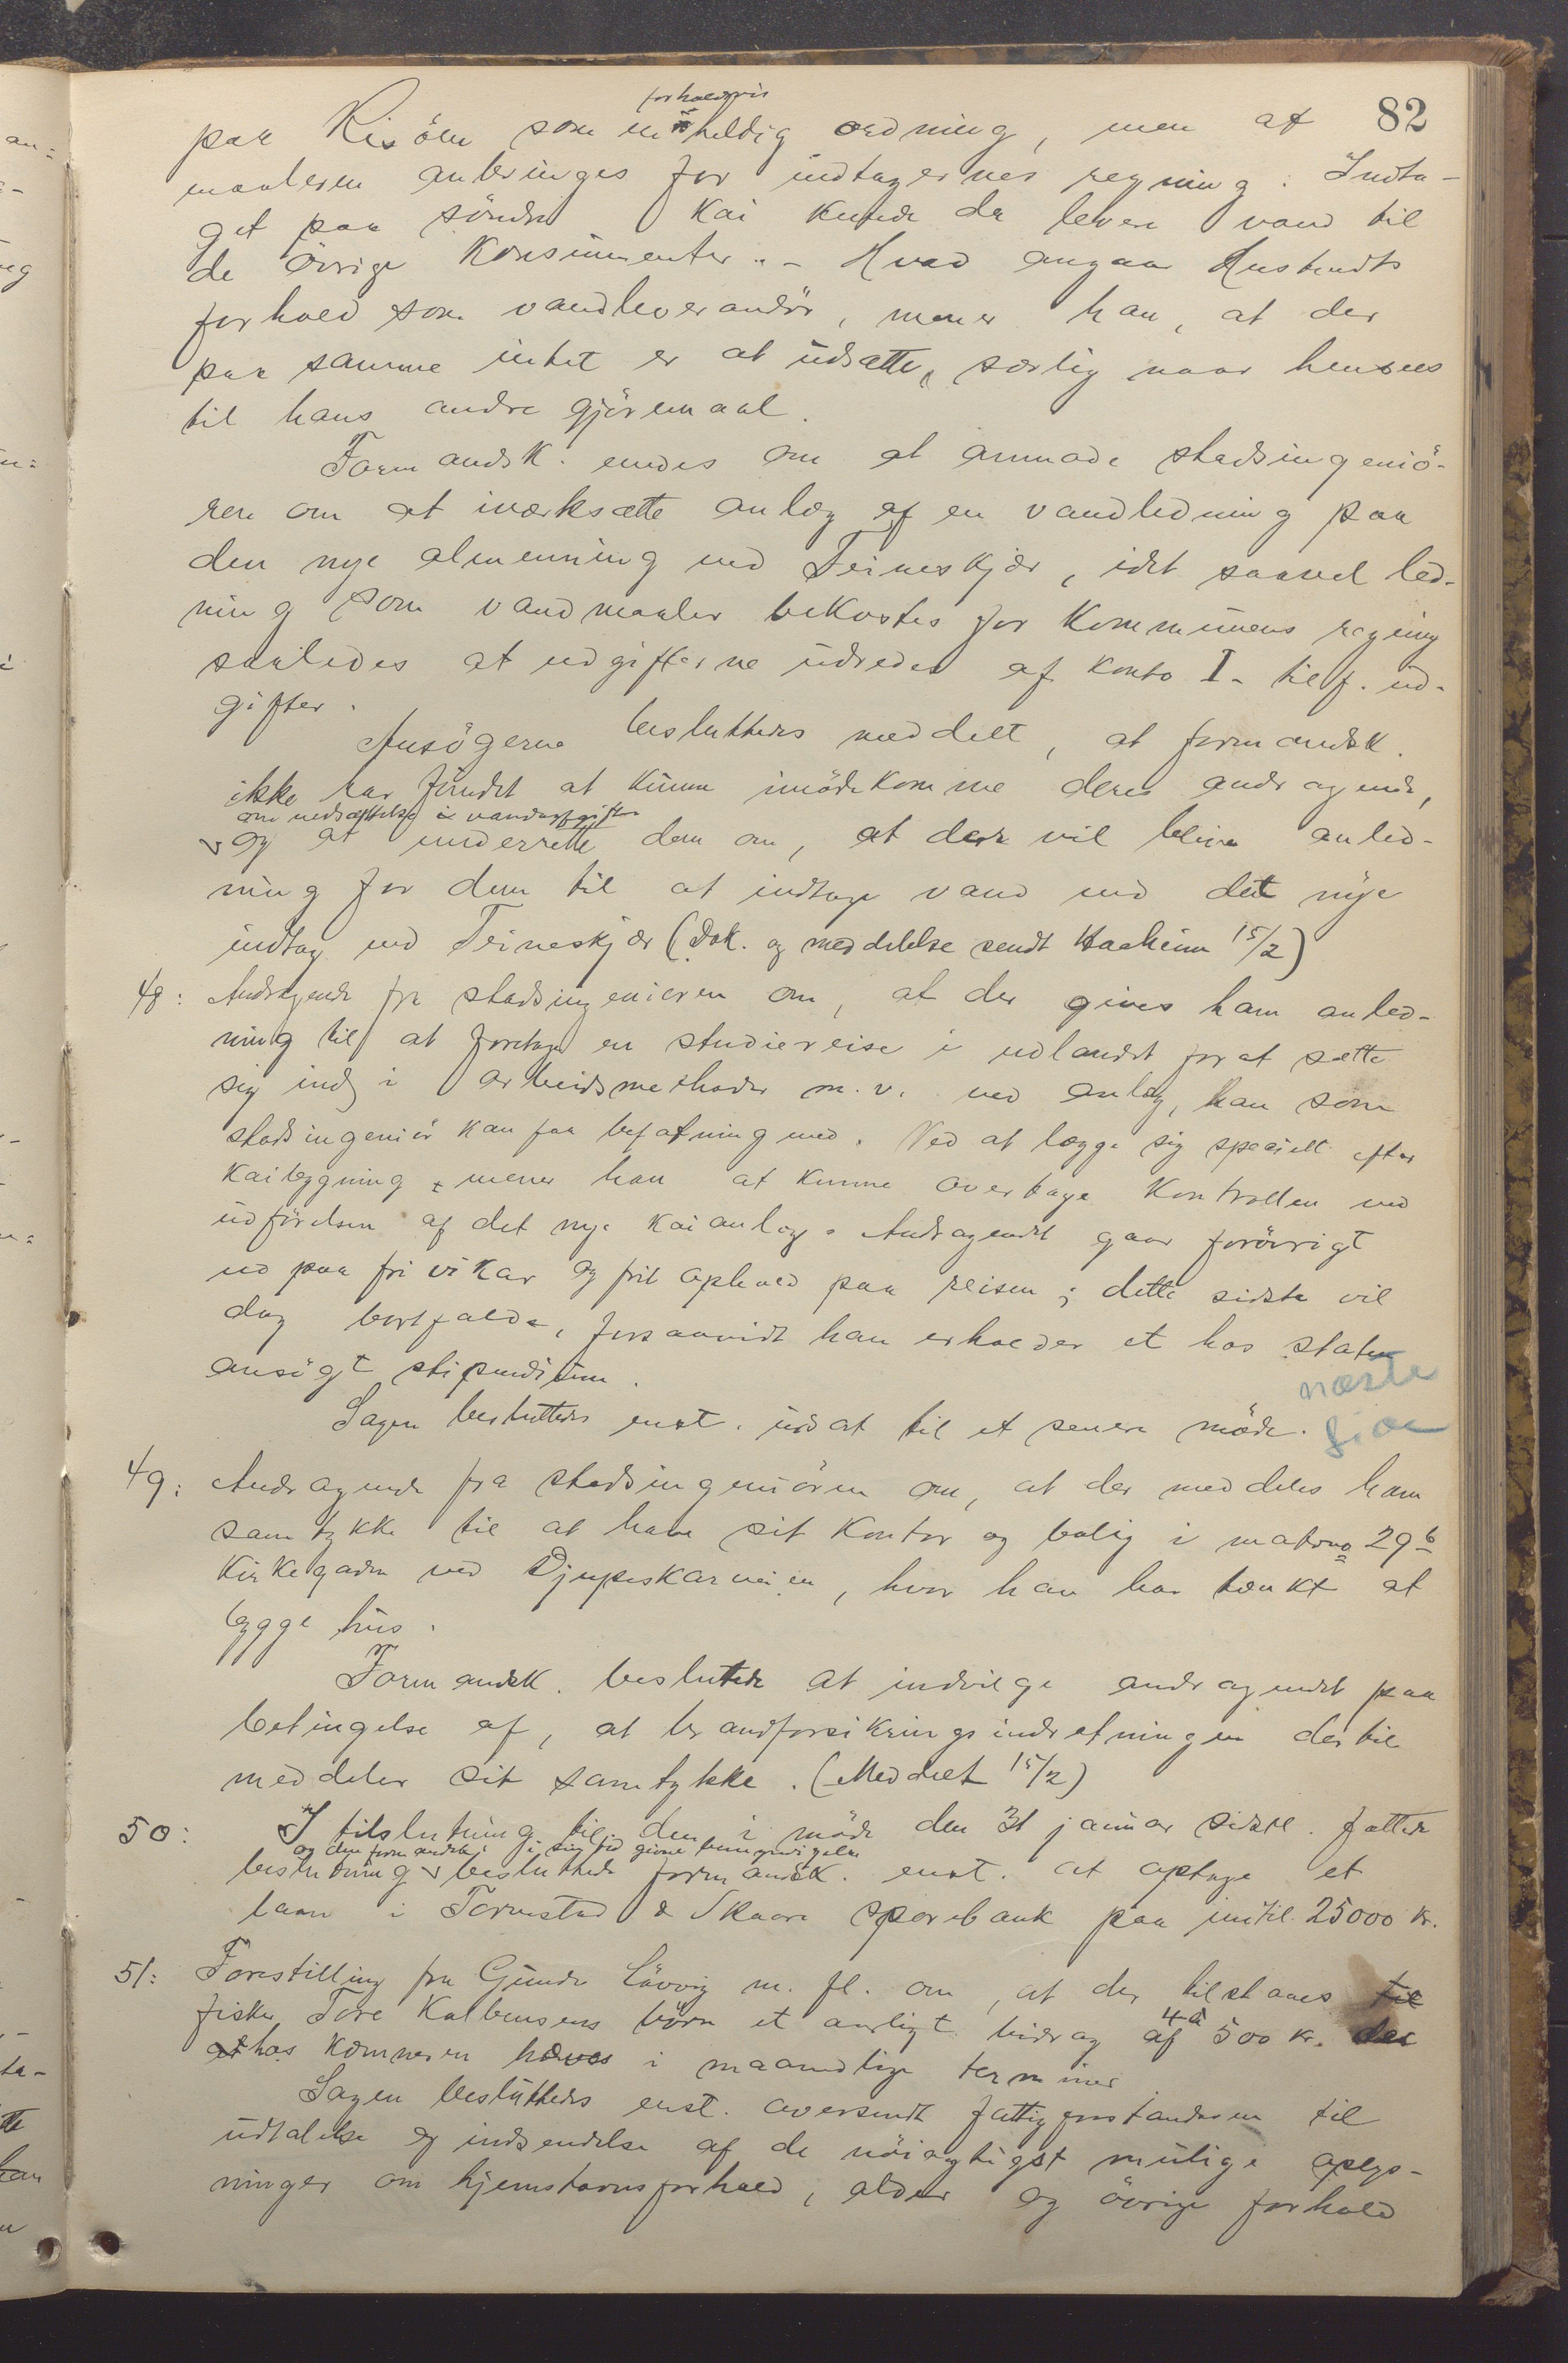 82
paa Risöen som en forholdsvis heldig ordning, men at
maaleren anbringes for indtagernes regning. Indta-
get paa söndre Kai kunde da levere vand til
de övrige Konsumenter. - Hvad angaar Austendts
forhold som vandleverandör, mener han, at der
paa samme intet er at udsætte, særlig naar hensees
til hans andre gjöremaal.
Formandsk. enedes om at anmode stadsingeniö-
ren om at iværksætte anlæg af en vandledning paa
den nye almenning ved Teineskjær, idet saavel led-
ning som vandmaaler bekostes for Kommunens regning
saaledes at udgifterne udredes af Konto I - tilf. ud-
gifter.
Ansögerne besluttedes meddelt, at formandsk.
ikke har fundet at kunne imödekomme deres andragende,
om nedsættelse i vandafgiften
og at underrette dem om, at der vil blive anled-
ning for dem til at indtage vand ved det nye
indtag ved Teineskjær (Dok. og meddelelse sendt Haaheim 15/2)
48: Andragende fra stadsingeniøren om, at der gives ham anled-
ning til at foretage en studiereise i udlandet for at sætte
sig ind i arbeidsmethoder m. v. ved anlæg, han som
stadsingeniör kan faa befatning med. Ved at lægge sig specielt efter
Kaibygning, mener han at kunne overtage Kontrollen ved
udförelsen af det nye Kaianlæg. Andragendet gaar forövrigt
ud paa fri vikar og frit ophold paa reisen; dette sidste vil
dog bortfalde, forsaavidt han erholder et hos staten
ansögt stipendium.
næste
Sagen besluttedes enst. udsat til et senere möde.
49: Andragende fra stadsingeniören om, at der meddeles ham
samtykke til at have sit Kontor og bolig i matrno 29b
Kirkegaden ved Djupaskarveien, hvor han har tænkt at
bygge hus.
Formandsk. besluttede at indvilge andragendet paa
betingelse af, at brandforsikringsindretningen dertil
meddeler sit samtykke. (Meddelt 15/2)
50: I tilslutning til den i möde den 31 januar sidstl. fattede
og den formandsk. i sin tid givne bemyndigelse
beslutning besluttede formandsk. enst. at optage et
laan i Torvestad & Skaare sparebank paa indtil 25000 kr.
51: Forestilling fra Gunde Lövvig m. fl. om, at der tilstaaes til
fisker Tore Kolbensens börn et aarligt bidrag af 4 à 500 kr. der
at hos Kæmneren hæves i maanedlige terminer
Sagen besluttedes enst. oversendt fattigforstanderen til
udtalelse og indsendelse af de nöiagtigst mulige oplys-
ninger om hjemstavnsforhold, alder og övrige forhold